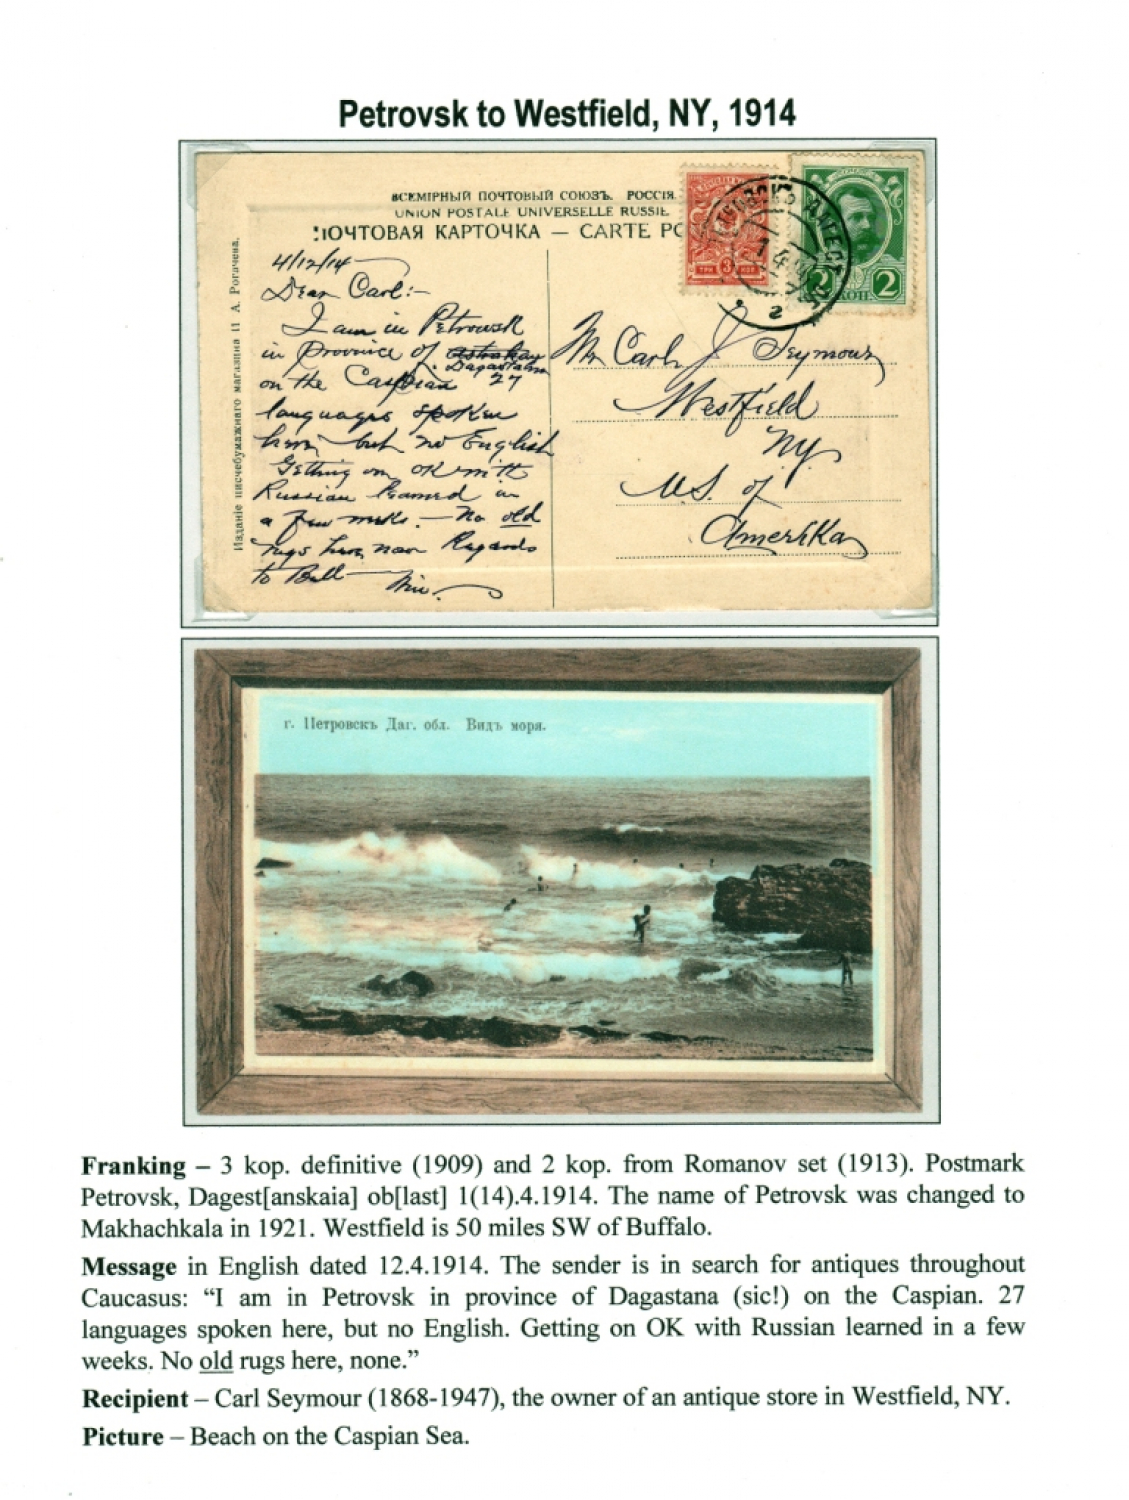 Petrovsk to Westfield, NY, 1914
ВСЕМІРНЫЙ ПОЧТОВЫЙ СОЮЗЪ. РОССІЯ
UNION POSTALE UNIVERSELLE RUSSIE
ПОЧТОВАЯ КАРТОЧКА — CARTE PO
Изданіе писчебумажнаго магазина И А. Рогачева.
ТРИ 3 КОП
2 2
КОП.
2
4/12/14
Dear Carl:-
I am in Petrovsk
in Province of Astrakan
Dagastana
on the Caspian 27
languages spoken
here but no English
Getting on OK with
Russian learned in
a few weeks. — No old
rugs here, none Regards
to Bill —
Mr Carl J Seymour
Westfield
NY
U.S. of
Amerika
г. Петровскъ Даг. обл. Видъ моря.
Franking – 3 kop. definitive (1909) and 2 kop. from Romanov set (1913). Postmark
Petrovsk, Dagest[anskaia] ob[last] 1(14).4.1914. The name of Petrovsk was changed to
Makhachkala in 1921. Westfield is 50 miles SW of Buffalo.
Message in English dated 12.4.1914. The sender is in search for antiques throughout
Caucasus: “I am in Petrovsk in province of Dagastana (sic!) on the Caspian. 27
languages spoken here, but no English. Getting on OK with Russian learned in a few
weeks. No old rugs here, none.”
Recipient – Carl Seymour (1868-1947), the owner of an antique store in Westfield, NY.
Picture – Beach on the Caspian Sea.